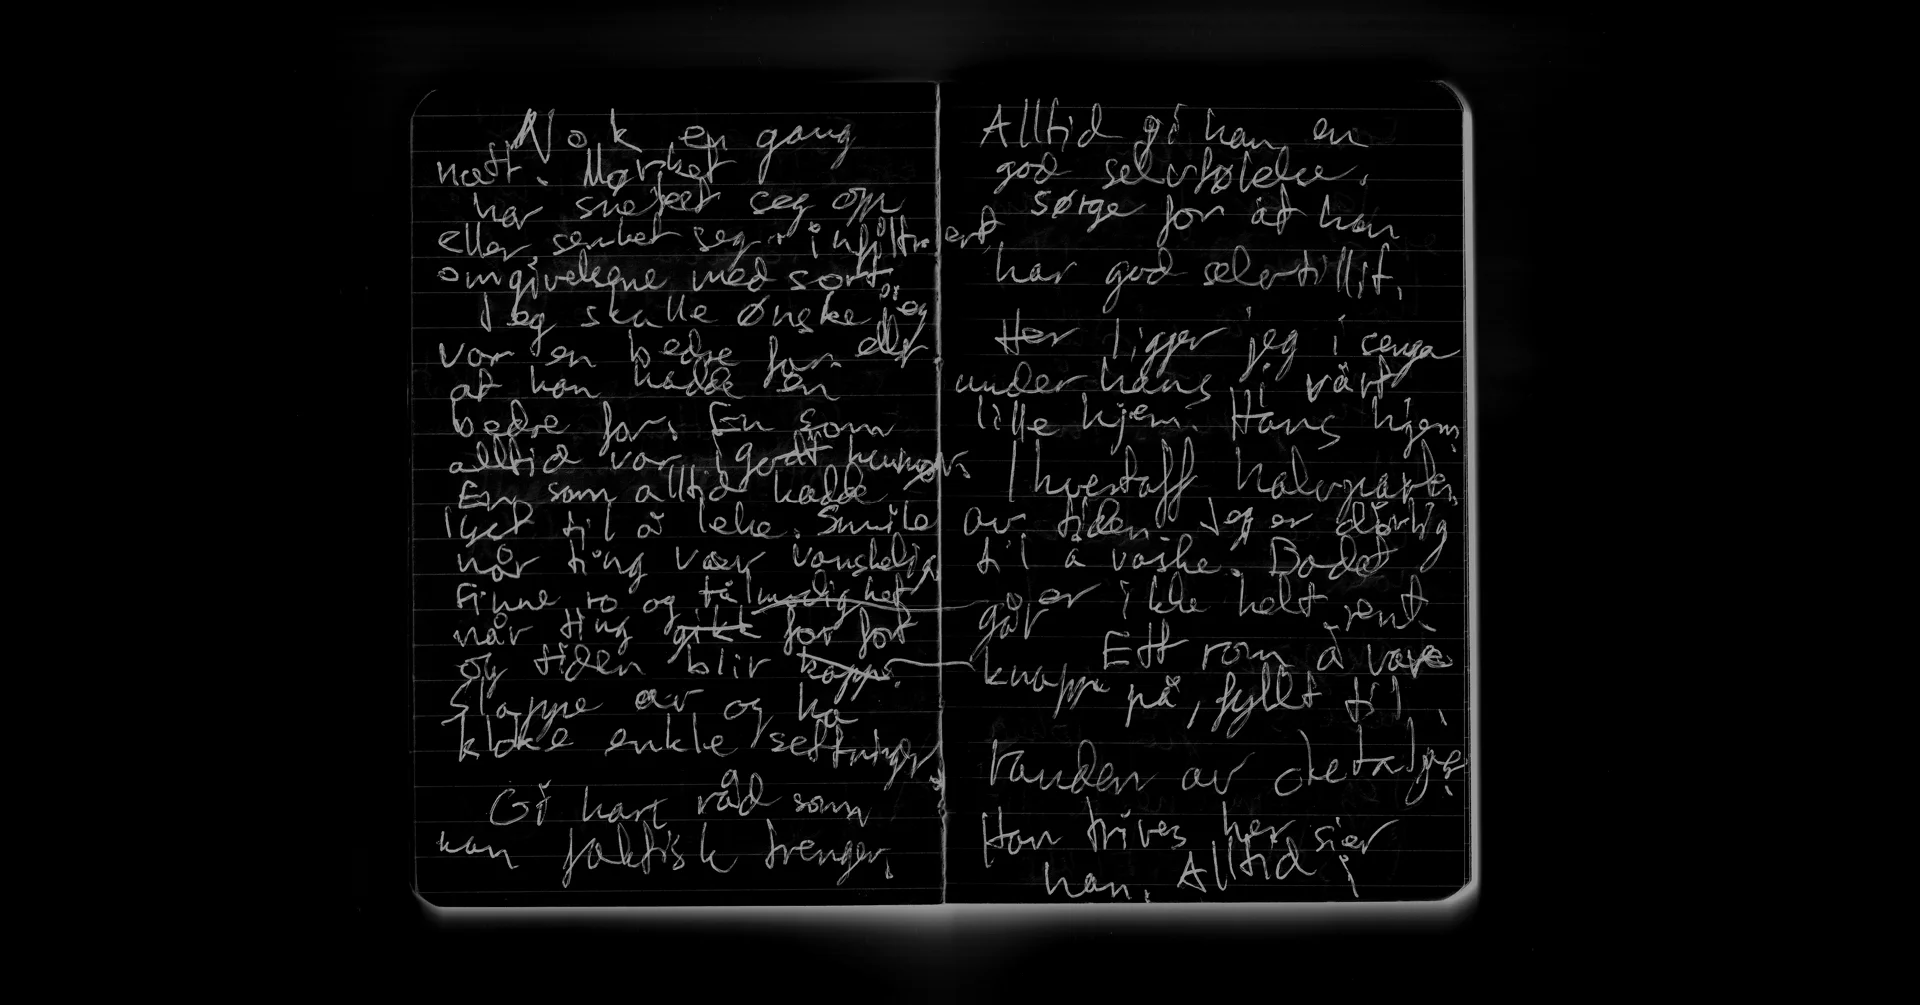 Nok en gang
natt. Mørket
har sneket seg opp
eller senket seg. infiltrert
omgivelsene med sort.
Jeg skulle ønske jeg
var en bedre far. eller
at han hadde en
bedre far. En som
alltid var i godt humør.
En som alltid hadde
lyst til å leke. Smile
når ting var vanskelig
Finne ro og tålmodighet
når ting gikk for fort
og tiden blir knapp.
Slappe av og ha
kloke enkle settninger.
Gi ham råd som
han faktisk trenger.
Alltid gi han en
god selvfølelse.
Sørge for at han
har god selvtillit.
Her ligger jeg i senga
under hans i vårt
lille hjem. Hans hjem
halvparten
av tiden. Jeg er dårlig
til å vaske. Badet
er ikke helt rent
går
Ett rom å være
knapp på, fyllt til
randen av
Han trives her sier
han. Alltid i